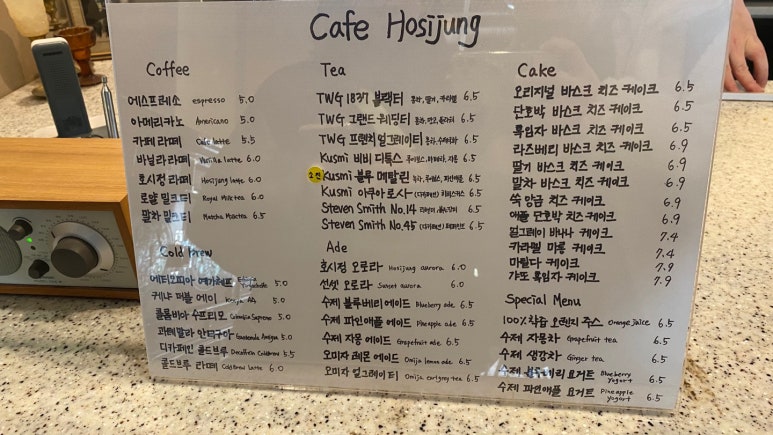 Cafe Hosijung
Coffee
에스프레소 espresso 5.0
아메리카노 Americano 5.0
카페 라떼 Cafe latte 5.5
바닐라 라떼 Vanilla latte 6.0
호시정 라떼 Hosijung latte 6.0
로얄 밀크티 Royal Milk tea 6.0
말차 밀크티 Matcha Milk tea 6.5
Cold Brew
에티오피아 예가체프
케냐 더블 에이 Kenya AA 5.0
콜롬비아 수프리모 Colombia Supremo 5.0
과테말라 안티구아 Guatemala Antigua 5.0
디카페인 콜드브루 Decaffein Coldbrew 5.5
콜드브루 라떼 Cold Brew Latte 6.0
Tea
TWG 1837 블랙티 홍차, 딸기, 카라멜 6.5
TWG 그랜드 웨딩티 6.5
TWG 프렌치 얼그레이티 6.5
Kusmi 비비 디톡스 6.5
Kusmi 블루 메탈린 6.5
Kusmi 아쿠아 로사 (디카페인) 히비스커스 6.5
Steven Smith No.14 6.5
Steven Smith No.45 (디카페인) 페퍼민트 6.5
Ade
호시정 오로라 Hosijung aurora 6.0
선셋 오로라 Sunset aurora 6.0
수제 블루베리 에이드 Blueberry ade 6.5
수제 파인애플 에이드 Pineapple ade 6.5
수제 자몽 에이드 Grapefruit ade 6.5
오미자 레몬 에이드 Omija lemon ade 6.5
오미자 얼그레이티 Omija earlgrey tea 6.5
Cake
오리지널 바스크 치즈 케이크 6.5
단호박 바스크 치즈 케이크 6.5
흑임자 바스크 치즈케이크 6.5
라즈베리 바스크 치즈케이크 6.9
딸기 바스크 치즈 케이크 6.9
말차 바스크 치즈 케이크 6.9
쑥 앙금 치즈 케이크 6.9
애플 단호박 치즈케이크 6.9
얼그레이 바나나 케이크 7.4
카라멜 미롱 케이크 7.4
마릴다 케이크 7.9
갸또 흑임자 케이크 7.9
Special Menu
100% 착즙 오렌지 주스 Orange juice 6.5
수제 자몽차 Grapefruit tea 6.5
수제 생강차 Ginger tea 6.5
수제 블루베리 요거트 Blueberry yogurt 6.5
수제 파인애플 요거트 Pineapple yogurt 6.5